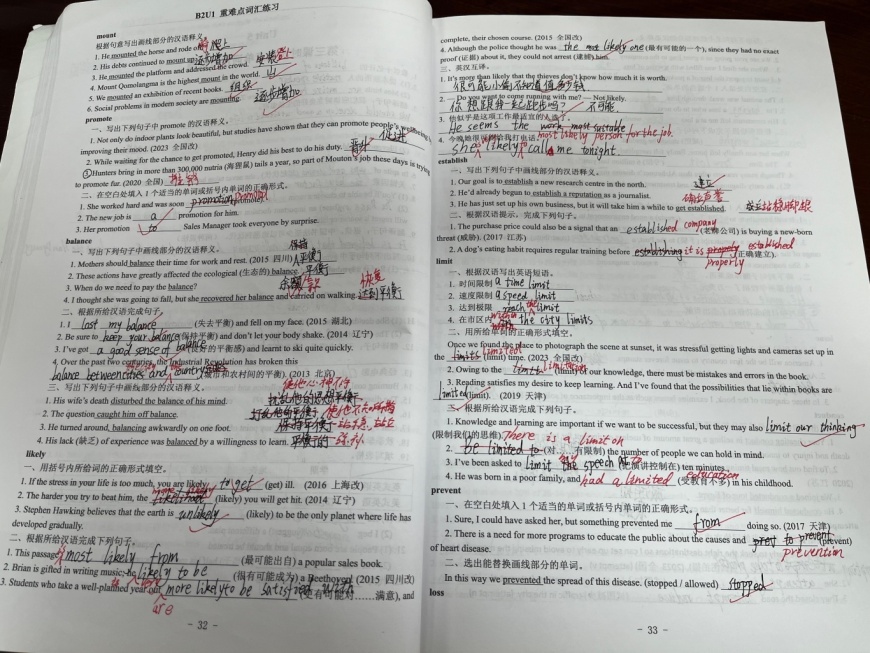 B2U1 重难点词汇练习
mount
根据句意写出画线部分的汉语释义。
1. He mounted the horse and rode o 爬上
2. His debts continued to mount up 逐步增加
3. He mounted the platform and addressed the crowd. 登上
4. Mount Qomolangma is the highest mount in the world. 山
5. We mounted an exhibition of recent books. 组织
6. Social problems in modern society are mounting. 逐步增加
promote
一、写出下列句子中 promote 的汉语释义。
1. Not only do indoor plants look beautiful, but studies have shown that they can promote people's wellbeing by
improving their mood. (2023 全国改) 促进
2. While waiting for the chance to get promoted, Henry did his best to do his duty. 晋升
③Hunters bring in more than 300,000 nutria (海狸鼠) tails a year, so part of Mouton's job these days is trying
to promote fur. (2020 全国) 推销
二、在空白处填入 1 个适当的单词或括号内单词的正确形式。
1. She worked hard and was soon promotion promoted
2. The new job is a promotion for him.
3. Her promotion to Sales Manager took everyone by surprise.
balance
一、写出下列句子中画线部分的汉语释义。
1. Mothers should balance their time for work and rest. (2015 四川) 平衡
2. These actions have greatly affected the ecological (生态的) balance. 平衡
3. When do we need to pay the balance? 余额
4. I thought she was going to fall, but she recovered her balance and carried on walking. 恢复 达到平衡
二、根据所给汉语完成句子。
1. I lost my balance (失去平衡) and fell on my face. (2015 湖北)
2. Be sure to keep your balance (保持平衡) and don't let your body shake. (2014 辽宁)
3. I've got a good sense of balance (很好的平衡感) and learnt to ski quite quickly.
4. Over the past two centuries, the Industrial Revolution has broken this
balance between cities and country (城市和农村间的平衡). (2013 北京)
三、写出下列句子中画线部分的汉语释义。
1. His wife's death disturbed the balance of his mind. 扰乱他的思想平衡
2. The question caught him off balance.
3. He turned around, balancing awkwardly on one foot. 保持平衡
4. His lack (缺乏) of experience was balanced by a willingness to learn. 平衡的
likely
一、用括号内所给词的正确形式填空。
1. If the stress in your life is too much, you are likely to get (get) ill. (2016 上海改)
2. The harder you try to beat him, the more likely (likely) you will get hit. (2014 辽宁)
3. Stephen Hawking believes that the earth is unlikely (likely) to be the only planet where life has
developed gradually.
二、根据所给汉语完成下列句子。
1. This passage is most likely from (最可能出自) a popular sales book.
2. Brian is gifted in writing music; he likely to be (很有可能成为) a Beethoven. (2015 四川改)
3. Students who take a well-planned year out are more likely to be satisfied with (更有可能对……满意), and
- 32 -
complete, their chosen course. (2015 全国改)
4. Although the police thought he was the most likely one (最有可能的一个), since they had no exact
proof (证据) about it, they could not arrest (逮捕) him.
三、英汉互译。
1. It's more than likely that the thieves don't know how much it is worth.
很可能小偷不知道值多少钱
2. — Do you want to come running with me? — Not likely.
你想跟我一起跑步吗? 不可能
3. 他似乎是这项工作最适宜的人选了。
He seems the work most suitable most likely person for the job.
4. 今晚她很可能给我打电话
she is likely to call me tonight.
establish
一、写出下列句子中画线部分的汉语释义。
1. Our goal is to establish a new research centre in the north. 建立
2. He'd already begun to establish a reputation as a journalist. 确立声誉
3. He has just set up his own business, but it will take him a while to get established. 站稳脚跟
二、根据汉语提示，完成下列句子。
1. The purchase price could also be a signal that an established company (老牌公司) is buying a new-born
threat (威胁). (2017 江苏)
2. A dog's eating habit requires regular training before establishing it is properly established (正确建立).
properly
limit
一、根据汉语写出英语短语。
1. 时间限制 a time limit
2. 速度限制 a speed limit
3. 达到极限 reach the limit
4. 在市区内 within the city limits
二、用所给单词的正确形式填空。
Once we found the place to photograph the scene at sunset, it was stressful getting lights and cameras set up in
the limits limited (limit) time. (2023 全国改)
2. Owing to the limit limitations (limit) of our knowledge, there must be mistakes and errors in the book.
3. Reading satisfies my desire to keep learning. And I've found that the possibilities that lie within books are
limited (limit). (2019 天津)
三、根据所给汉语完成下列句子。
1. Knowledge and learning are important if we want to be successful, but they may also limit our thinking
(限制我们的思维). There is a limit on
2. be limited to (对……有限制) the number of people we can hold in mind.
3. I've been asked to limit the speech to (把演讲控制在) ten minutes.
4. He was born in a poor family, and had a limited education (受教育不多) in his childhood.
prevent
一、在空白处填入 1 个适当的单词或括号内单词的正确形式。
1. Sure, I could have asked her, but something prevented me from doing so. (2017 天津)
2. There is a need for more programs to educate the public about the causes and to prevent (prevent)
of heart disease. prevention
二、选出能替换画线部分的单词。
In this way we prevented the spread of this disease. (stopped / allowed) stopped
loss
- 33 -